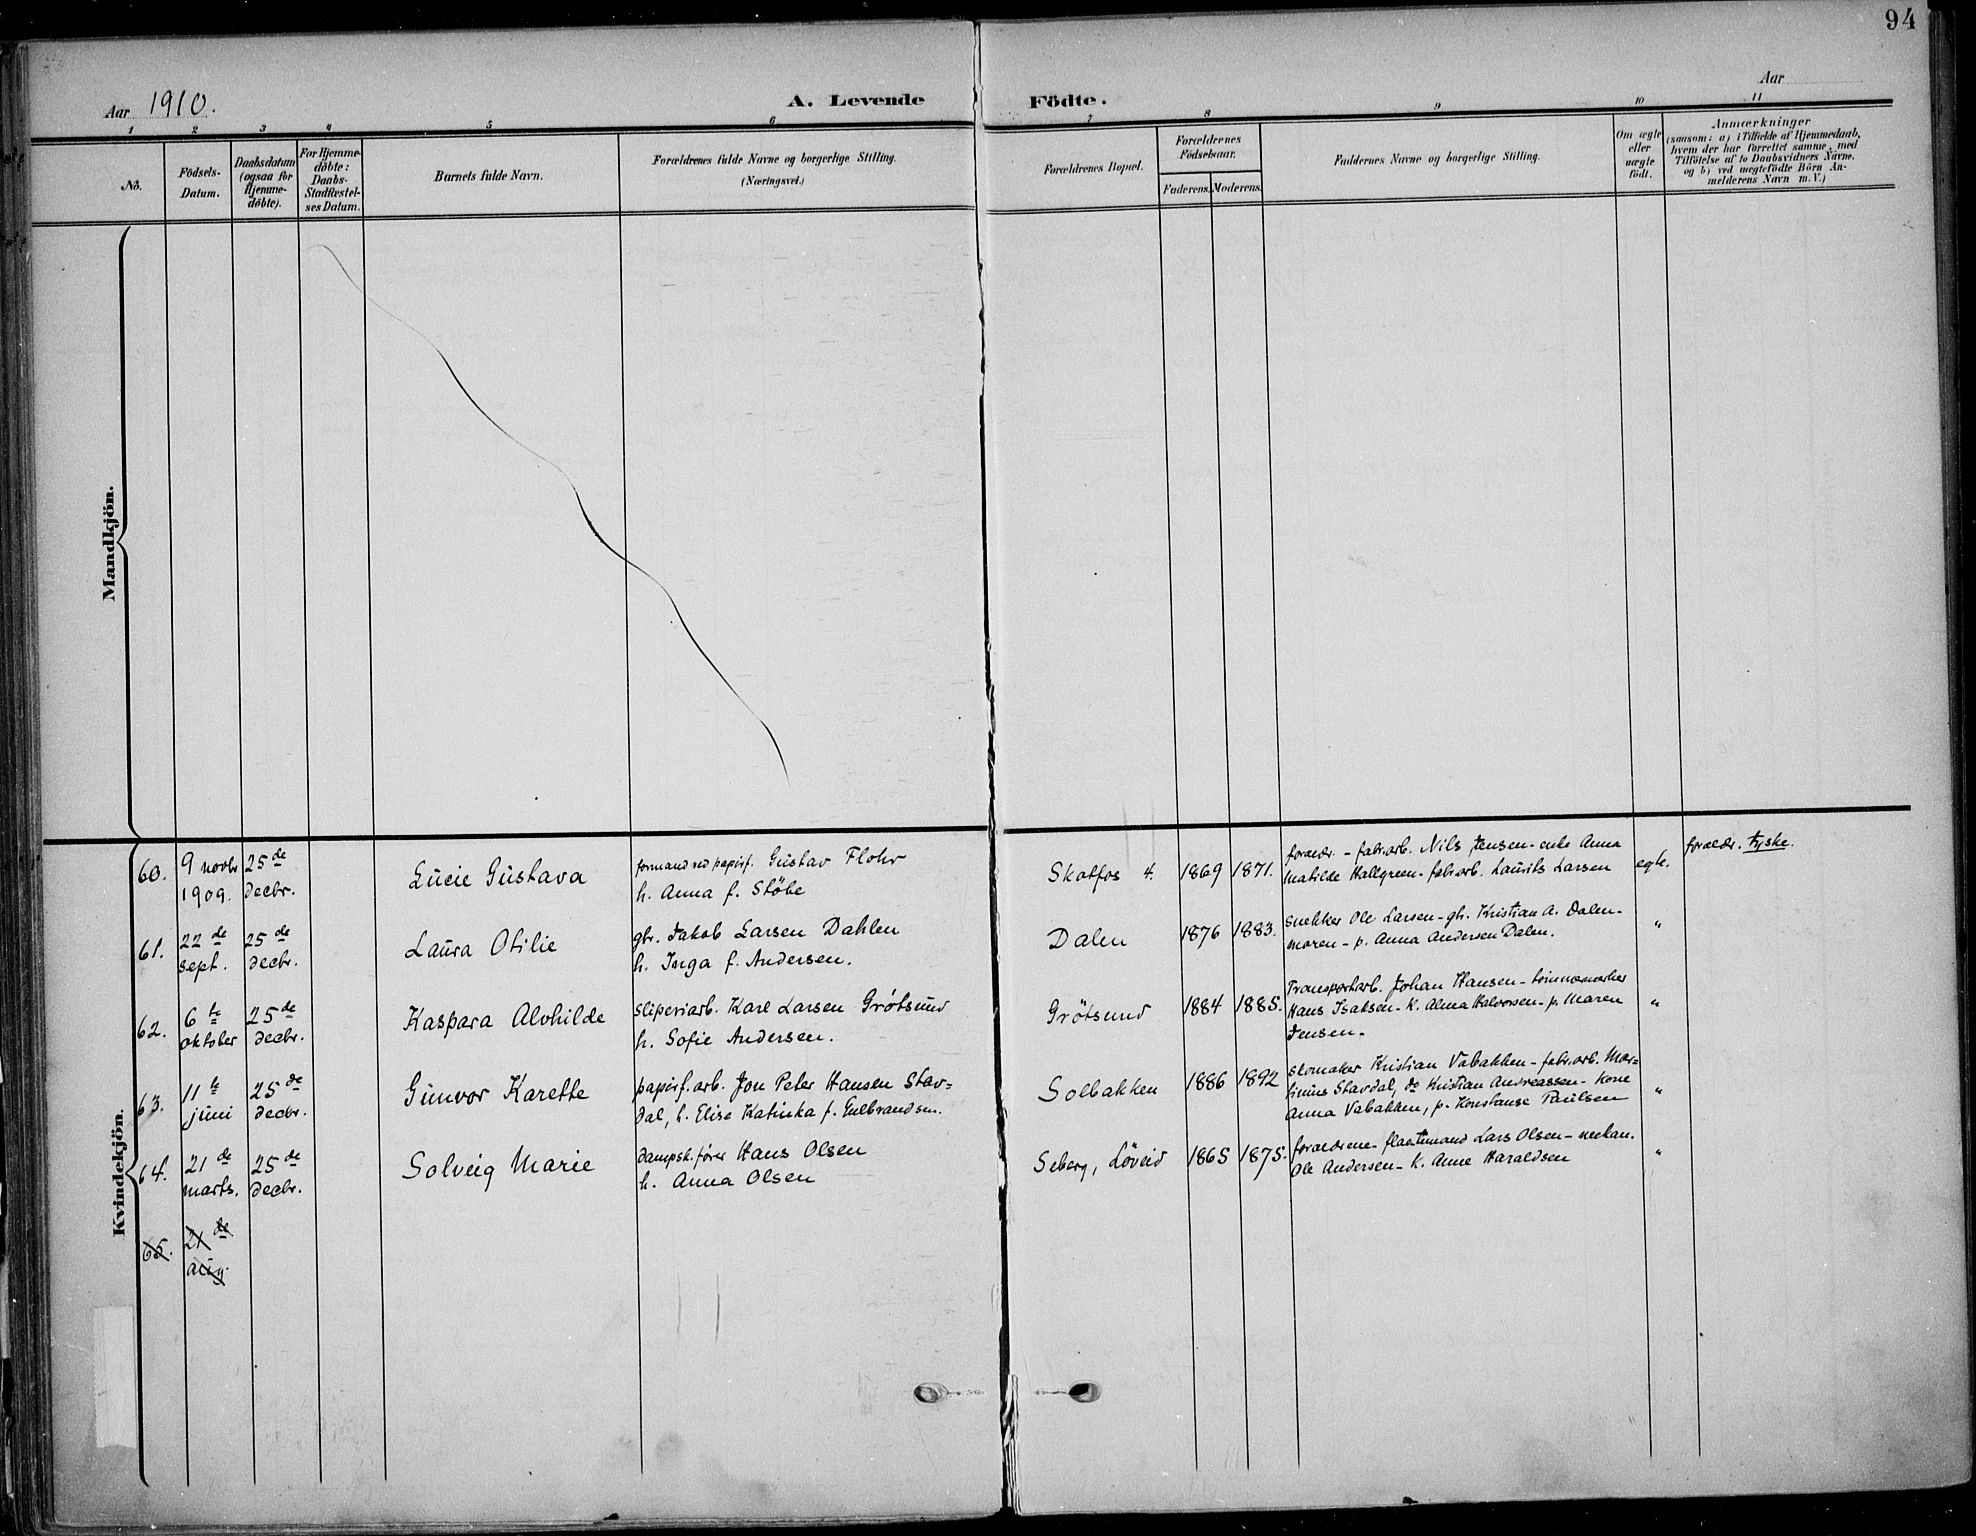 94
Aar 1910.
A. Levende Födte.
Aar
1 2 3 4 5 6 7 8 9 10 11
No.
Födsels-
Datum.
Daabsdatum
(ogsaa for
Hjemme-
döbte).
For Hjemme-
döbte:
Daabs-
Stadfæstel-
ses Datum.
Barnets fulde Navn.
Forældrenes fulde Navne og borgerlige Stilling.
(Næringsvei.)
Forældrenes Bopæl.
Forældrenes
Födselsaar.
Faderens. Moderens.
Faddernes Navne og borgerlige Stilling.
Om ægte
eller
uægte
født.
Anmærkninger
(saasom: a) i Tilfælde af Hjemmedaab,
hvem der har forrettet samme, med
Tilföielse af to Daabsvidners Navne.
og b) ved uægtefödte Börn An-
melderens Navn m. V.)
Mandkjön.
Kvindekjön.
60.
9 novbr
1909.
25 de
decbr.
Lucie Gustava
formand ved papirf. Gustav Flohr
h. Anna f. Stöbe
Skotfos 4.
1869
1871.
foraeldr. - fabr.arb. Nils Jensen - enke Anna
Matilde Hallgreen - fabr.arb. Laurits Larsen
egte.
foraeldr. tyske.
61.
22 de
sept.
25 de
decbr.
Laura Otilie
gbr. Jakob Larsen Dahlen
h. Inga f. Andersen.
Dalen
1876
1883.
snekker Ole Larsen - gbr. Kristian A. Dalen -
moren - p. Anna Andersen Dalen.
"
62.
6 te
oktober
25 de
decbr.
Kaspara Alvhilde
sliperiarb. Karl Larsen Grötsund
h. Sofie Andersen.
Grötsund
1884
1885.
Transportarb. Johan Hansen -
Hans Isaksen - k. Alma Halvorsen - p. Maren
Jensen -
"
63.
11 te
juni
25 de
decbr.
Gunvor Karette
papirf.arb. Jon Peter Hansen Stav=
dal, h. Elise Katinka f. Gulbrandsen.
Solbakken
1886
1892
skomaker Kristian Vabakken - fabr.arb. Mar=
tinius Stavdal, do Kristian Andreassen - kone
Anna Vabakken, p. Konstanse Paulsen
"
64.
21 de
marts.
25 de
decbr.
Solveig Marie
dampsk.fører Hans Olsen
h. Anna Olsen
Seberg, Löveid
1865
1875.
foraeldrene - Lars Olsen - mekan.
Ole Andersen - k. Anne Haraldsen
"
65.
21 de
aug.